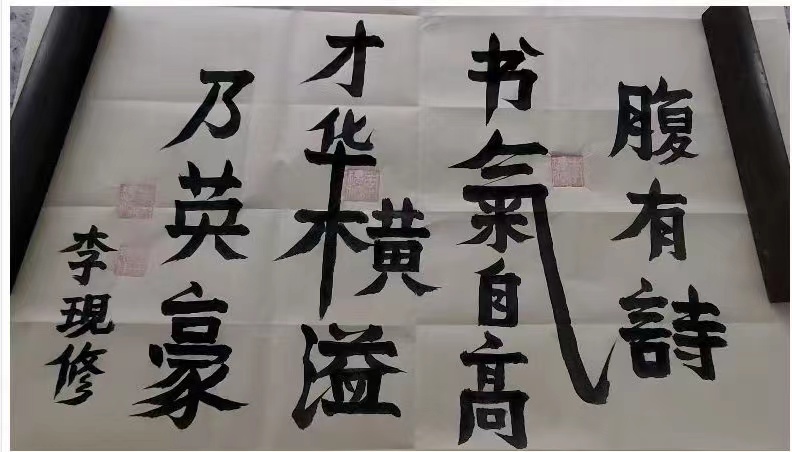 腹有詩
书氣自高
才华横溢
乃英豪
李現修